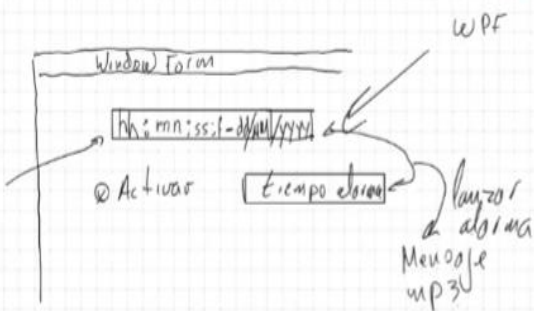 WPF
Window Form
hh:mn:ss:f-dd/MM/yyyy
Activar
tiempo alarma
lanzar
alarma
Mensaje
mp3